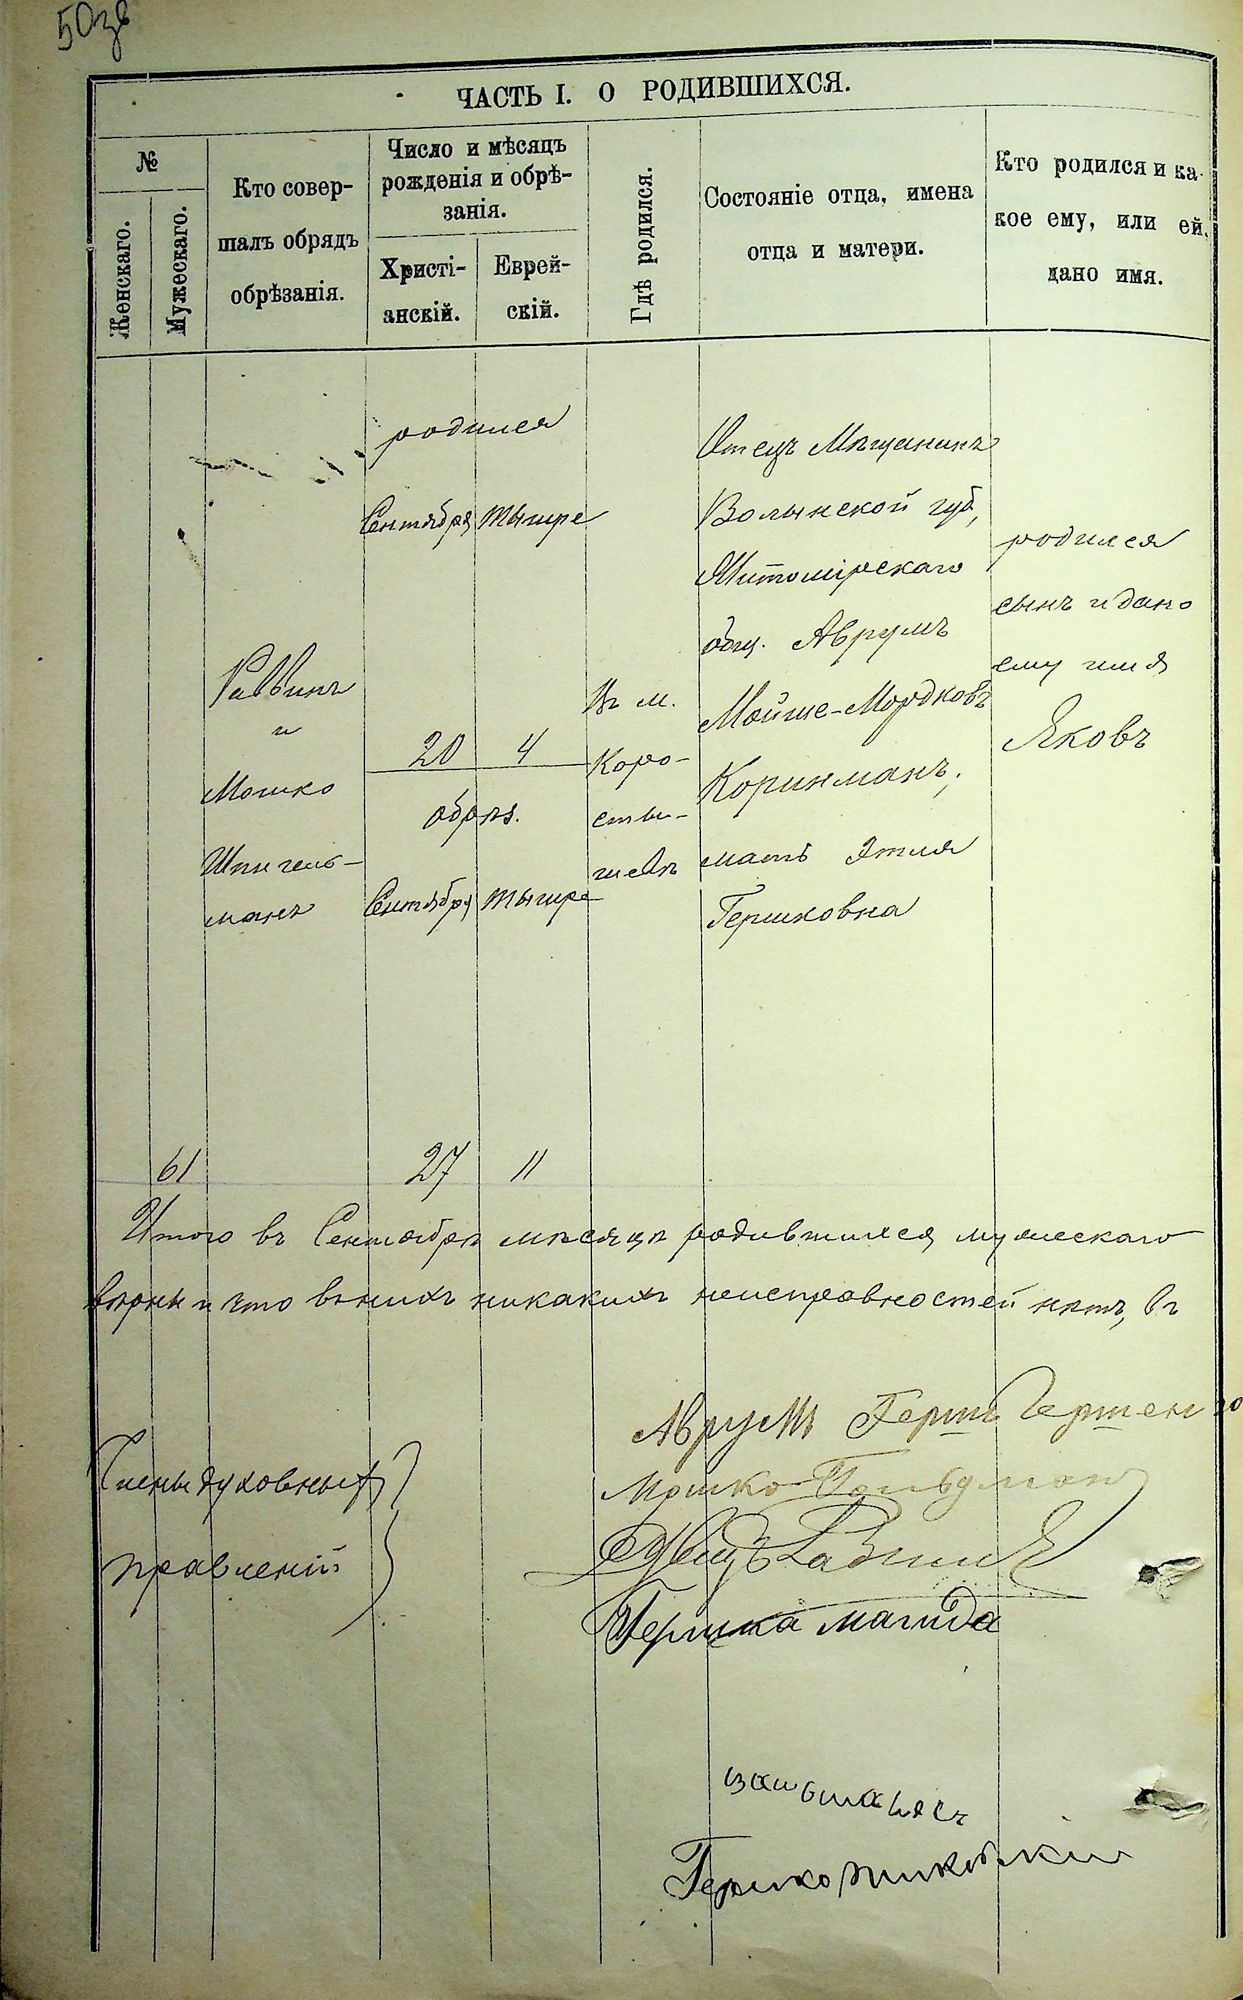 50зв
ЧАСТЬ I. О РОДИВШИХСЯ.
№
Женскаго.
Мужескаго.
Кто совер-
шалъ обрядъ
обрѣзанія.
Число и мѣсяцъ
рожденія и обрѣ-
занія.
Христі-
анскій.
Еврей-
скій.
Гдѣ родился.
Состояніе отца, имена
отца и матери.
Кто родился и ка-
кое ему, или ей,
дано имя.
61
Раввинъ
и
Мошко
Шпигель-
манъ
родился
Сентября Тышре
20 4
обрѣз.
Сентября Тышре
27 11
Въ м.
Коро-
сты-
шевѣ
Отецъ Мѣщанинъ
Волынской губ,
Житомірскаго
общ. Аврумъ
Мойше-Мордковъ
Коринманъ,
мать Этля
Гершковна
родился
сынъ и дано
ему имя
Яковъ
Итого въ Сентябрѣ мѣсяцѣ родившихся мужескаго
вѣрны и что в нихъ никакихъ неисправностей нѣтъ, въ
Члены духовныхъ
правленій
Аврумъ Гершъ
Мошко Гольдман
Гершка магида
Гершко